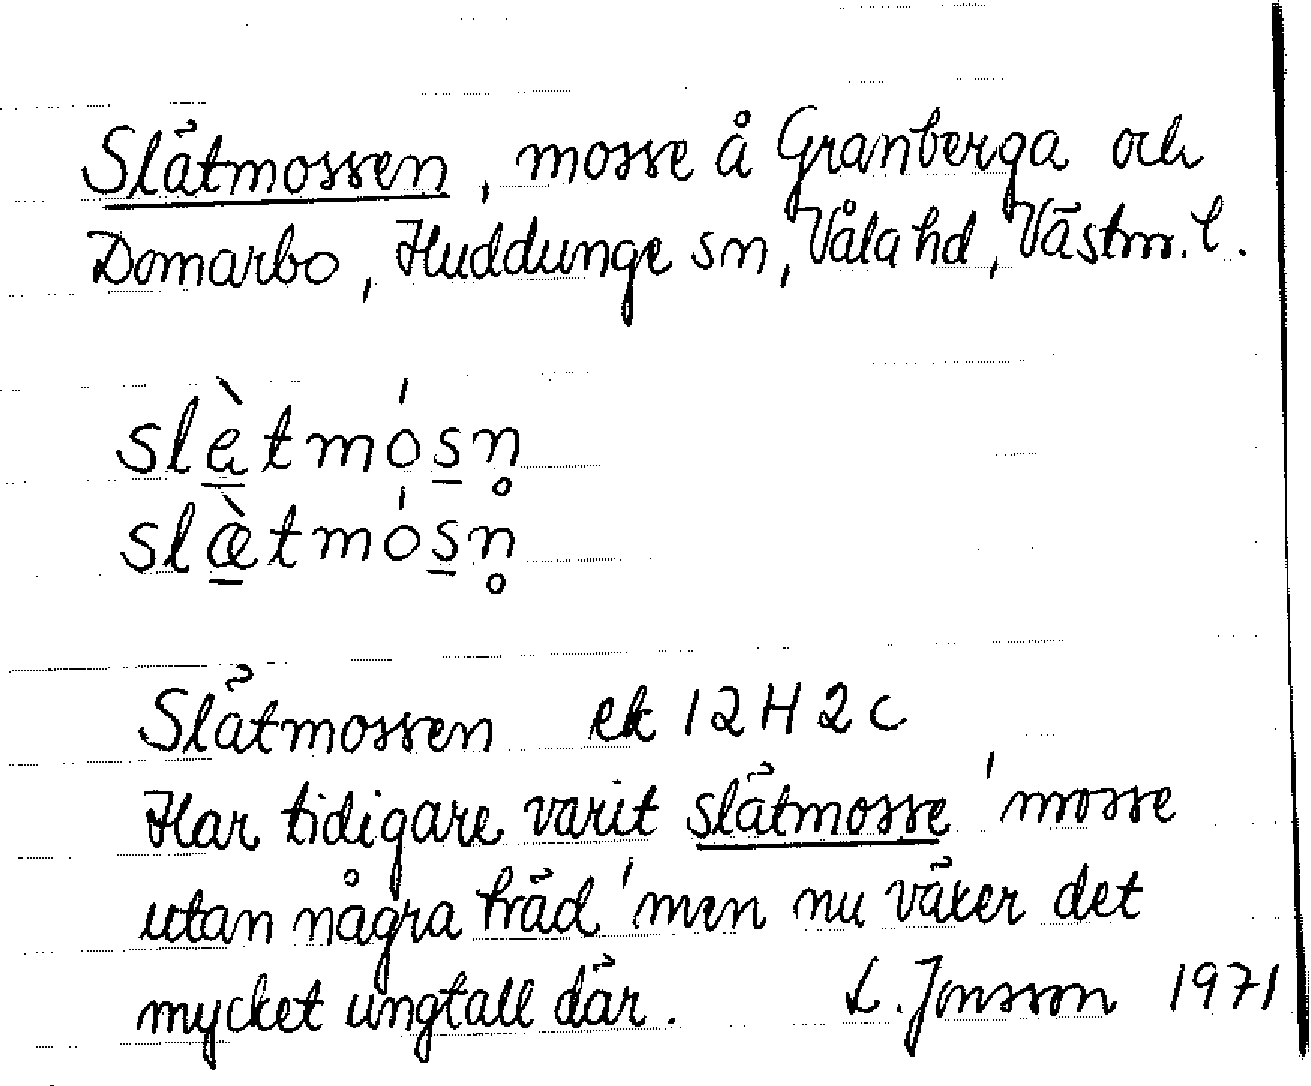 Slätmossen, mosse å Granberga och
Domarbo, Huddunge sn, Våla hd, Västm. l.
slè̱tmós̱n̥
slæ̱̀tmós̱n̥
Slätmossen ek 12H2c
Har tidigare varit slätmosse 'mosse
utan några träd' men nu växer det
mycket ungtall där. L. Jonsson 1971